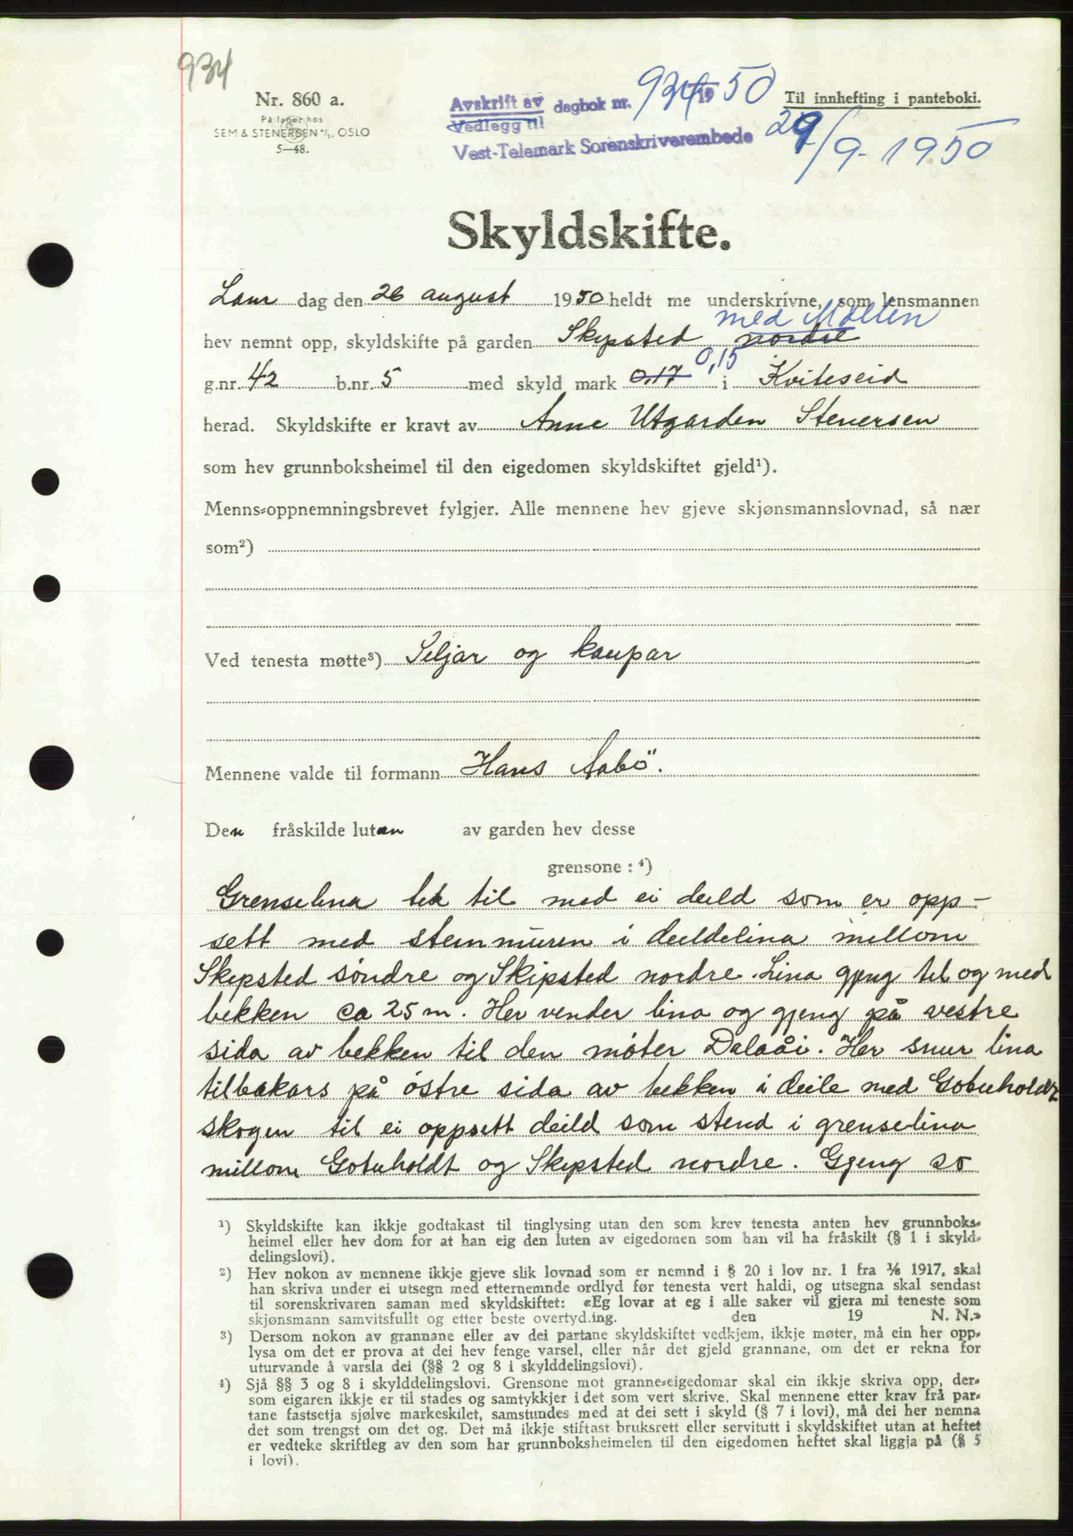 934
Nr. 860 a.
På lager hos
SEM & STENERSEN A/S, OSLO
5—48.
Avskrift av
Vedlegg til
dagbok nr. 934 1950
Vest-Telemark Sorenskriverembede
Til innhefting i panteboki.
29/9-1950
Skyldskifte.
Laur dag den 26 august 1950 heldt me underskrivne, som lensmannen
med Molten
hev nemnt opp, skyldskifte på garden Skipsted nordre
0,15
g.nr. 42 b.nr. 5 med skyld mark 0,17 i Kviteseid
herad. Skyldskifte er kravt av Anne Utgarden Stenersen
som hev grunnboksheimel til den eigedomen skyldskiftet gjeld¹).
Menns-oppnemningsbrevet fylgjer. Alle mennene hev gjeve skjønsmannslovnad, så nær
som²)
Ved tenesta møtte³) Seljar og kaupar
Mennene valde til formann Hans Aabö.
Den fråskilde lutan av garden hev desse
grensone : ⁴)
Grenselina tek til med ei deild som er opp-
sett med steinmuren i deildelina millom
Skipsted söndre og Skipsted nordre. Lina gjeng til og med
bekken ca 25 m. Her vender lina og gjeng på vestre
sida av bekken til den möter Dalaåi. Her snur lina
tilbakars på östre sida av bekken i deile med Gotuholdt
skogen til ei oppsett deild som stend i grenselina
millom Gotuholdt og Skipsted nordre. Gjeng so
¹) Skyldskifte kan ikkje godtakast til tinglysing utan den som krev tenesta anten hev grunnboks-
heimel eller hev dom for at han eig den luten av eigedomen som han vil ha fråskilt (§ 1 i skyld-
delingslovi).
²) Hev nokon av mennene ikkje gjeve slik lovnad som er nemnd i § 20 i lov nr. 1 fra ⅟₈ 1917, skal
han skriva under ei utsegn med etternemnde ordlyd før tenesta vert haldi, og utsegna skal sendast
til sorenskrivaren saman med skyldskiftet: «Eg lovar at eg i alle saker vil gjera mi teneste som
skjønsmann samvitsfullt og etter beste overtyding. den 19 N. N.»
³) Dersom nokon av grannane eller av dei partane skyldskiftet vedkjem, ikkje møter, må ein her opp-
lysa om det er prova at dei hev fenge varsel, eller når det gjeld grannane, om det er rekna for
uturvande å varsla dei (§§ 2 og 8 i skylddelingslovi).
⁴) Sjå §§ 3 og 8 i skylddelingslovi. Grensone mot granne-eigedomar skal ein ikkje skriva opp, der-
som eigaren ikkje er til stades og samtykkjer i det som vert skrive. Skal mennene etter krav frå par-
tane fastsetja sjølve markeskilet, samstundes med at dei sett i skyld (§ 7 i lovi), må dei her nemna
det som trengst om det og. Det må ikkje stiftast bruksrett eller servitutt i skyldskiftet utan at heftet
er vedteke skriftleg av den som har grunnboksheimelen til den eigedomen heftet skal liggja på (§ 5
i lovi).